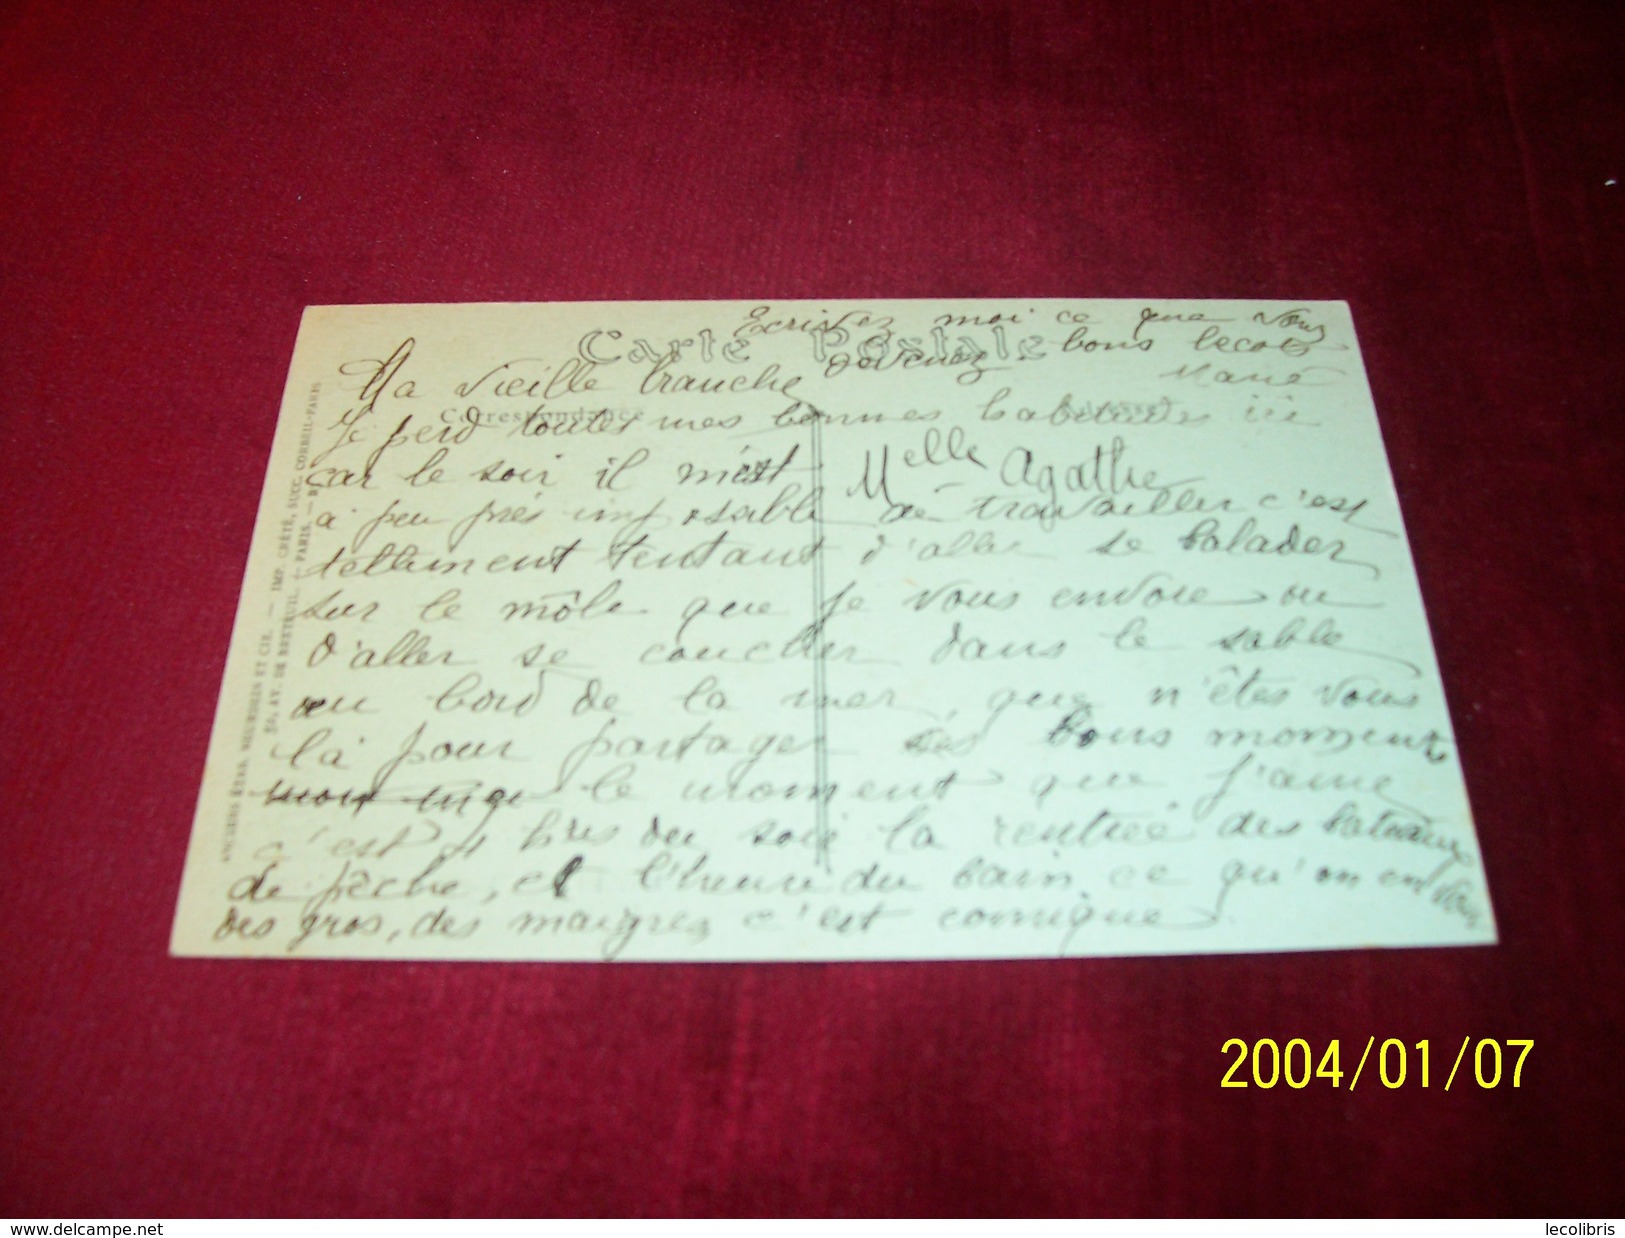 Ecrivez moi ce que vous
devenez bons bécots
Carte Postale
Ma vieille branche
Correspondance
Je perd toutes mes bonnes habitudes ici
car le soir il m'est
Melle Agathe
à peu près impossible de travailler c'est
tellement tentant d'aller se balader
sur le môle que je vous envoie ou
d'aller se coucher dans le sable
au bord de la mer, que n'êtes vous
là pour partager ces bons moments
le moment que j'aime
c'est 4 hres du soir la rentrée des bateaux
de pêche, et l'heure du bain, ce qu'on en voit
des gros, des maigres c'est comique.
ANCIENS ETAB. NEURDEIN ET CIE. — IMP. CRÉTÉ, SUCC. CORBEIL-PARIS
50, AV. DE BRETEUIL. — PARIS.
2004/01/07
www.delcampe.net
lecolibris